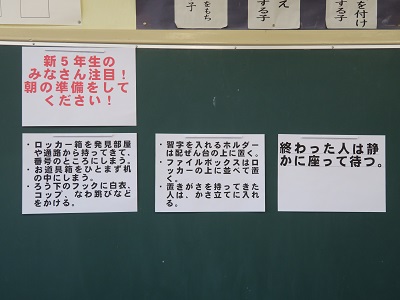 をもち
子
え
する子
を付け
する子
新5年生の
みなさん注目!
朝の準備をして
ください!
・ロッカー箱を発見部屋
や通路から持ってきて、
番号のところにしまう。
・お道具箱をひとまず机
の中にしまう。
・ろう下のフックに白衣、
コップ、なわ跳びなど
をかける。
・習字を入れるホルダー
は配ぜん台の上に置く。
・ファイルボックスはロ
ッカーの上に並べて置
く。
・置きがさを持ってきた
人は、かさ立てに入れ
る。
終わった人は静
かに座って待つ。